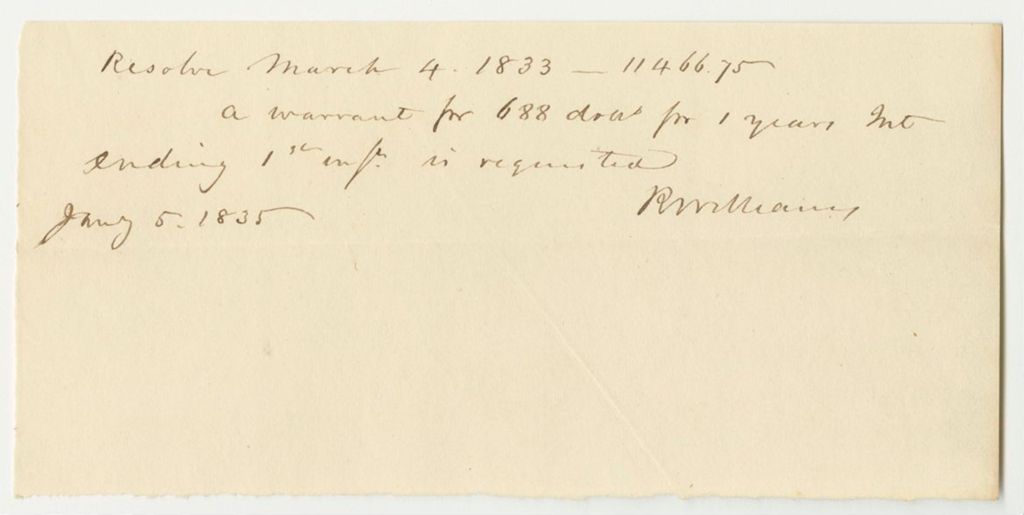 Resolve March 4. 1833 — 11466.75
a warrant for 688 dolls for 1 years Int
ending 1st inst. is requested
R Williams
Jany 5. 1835